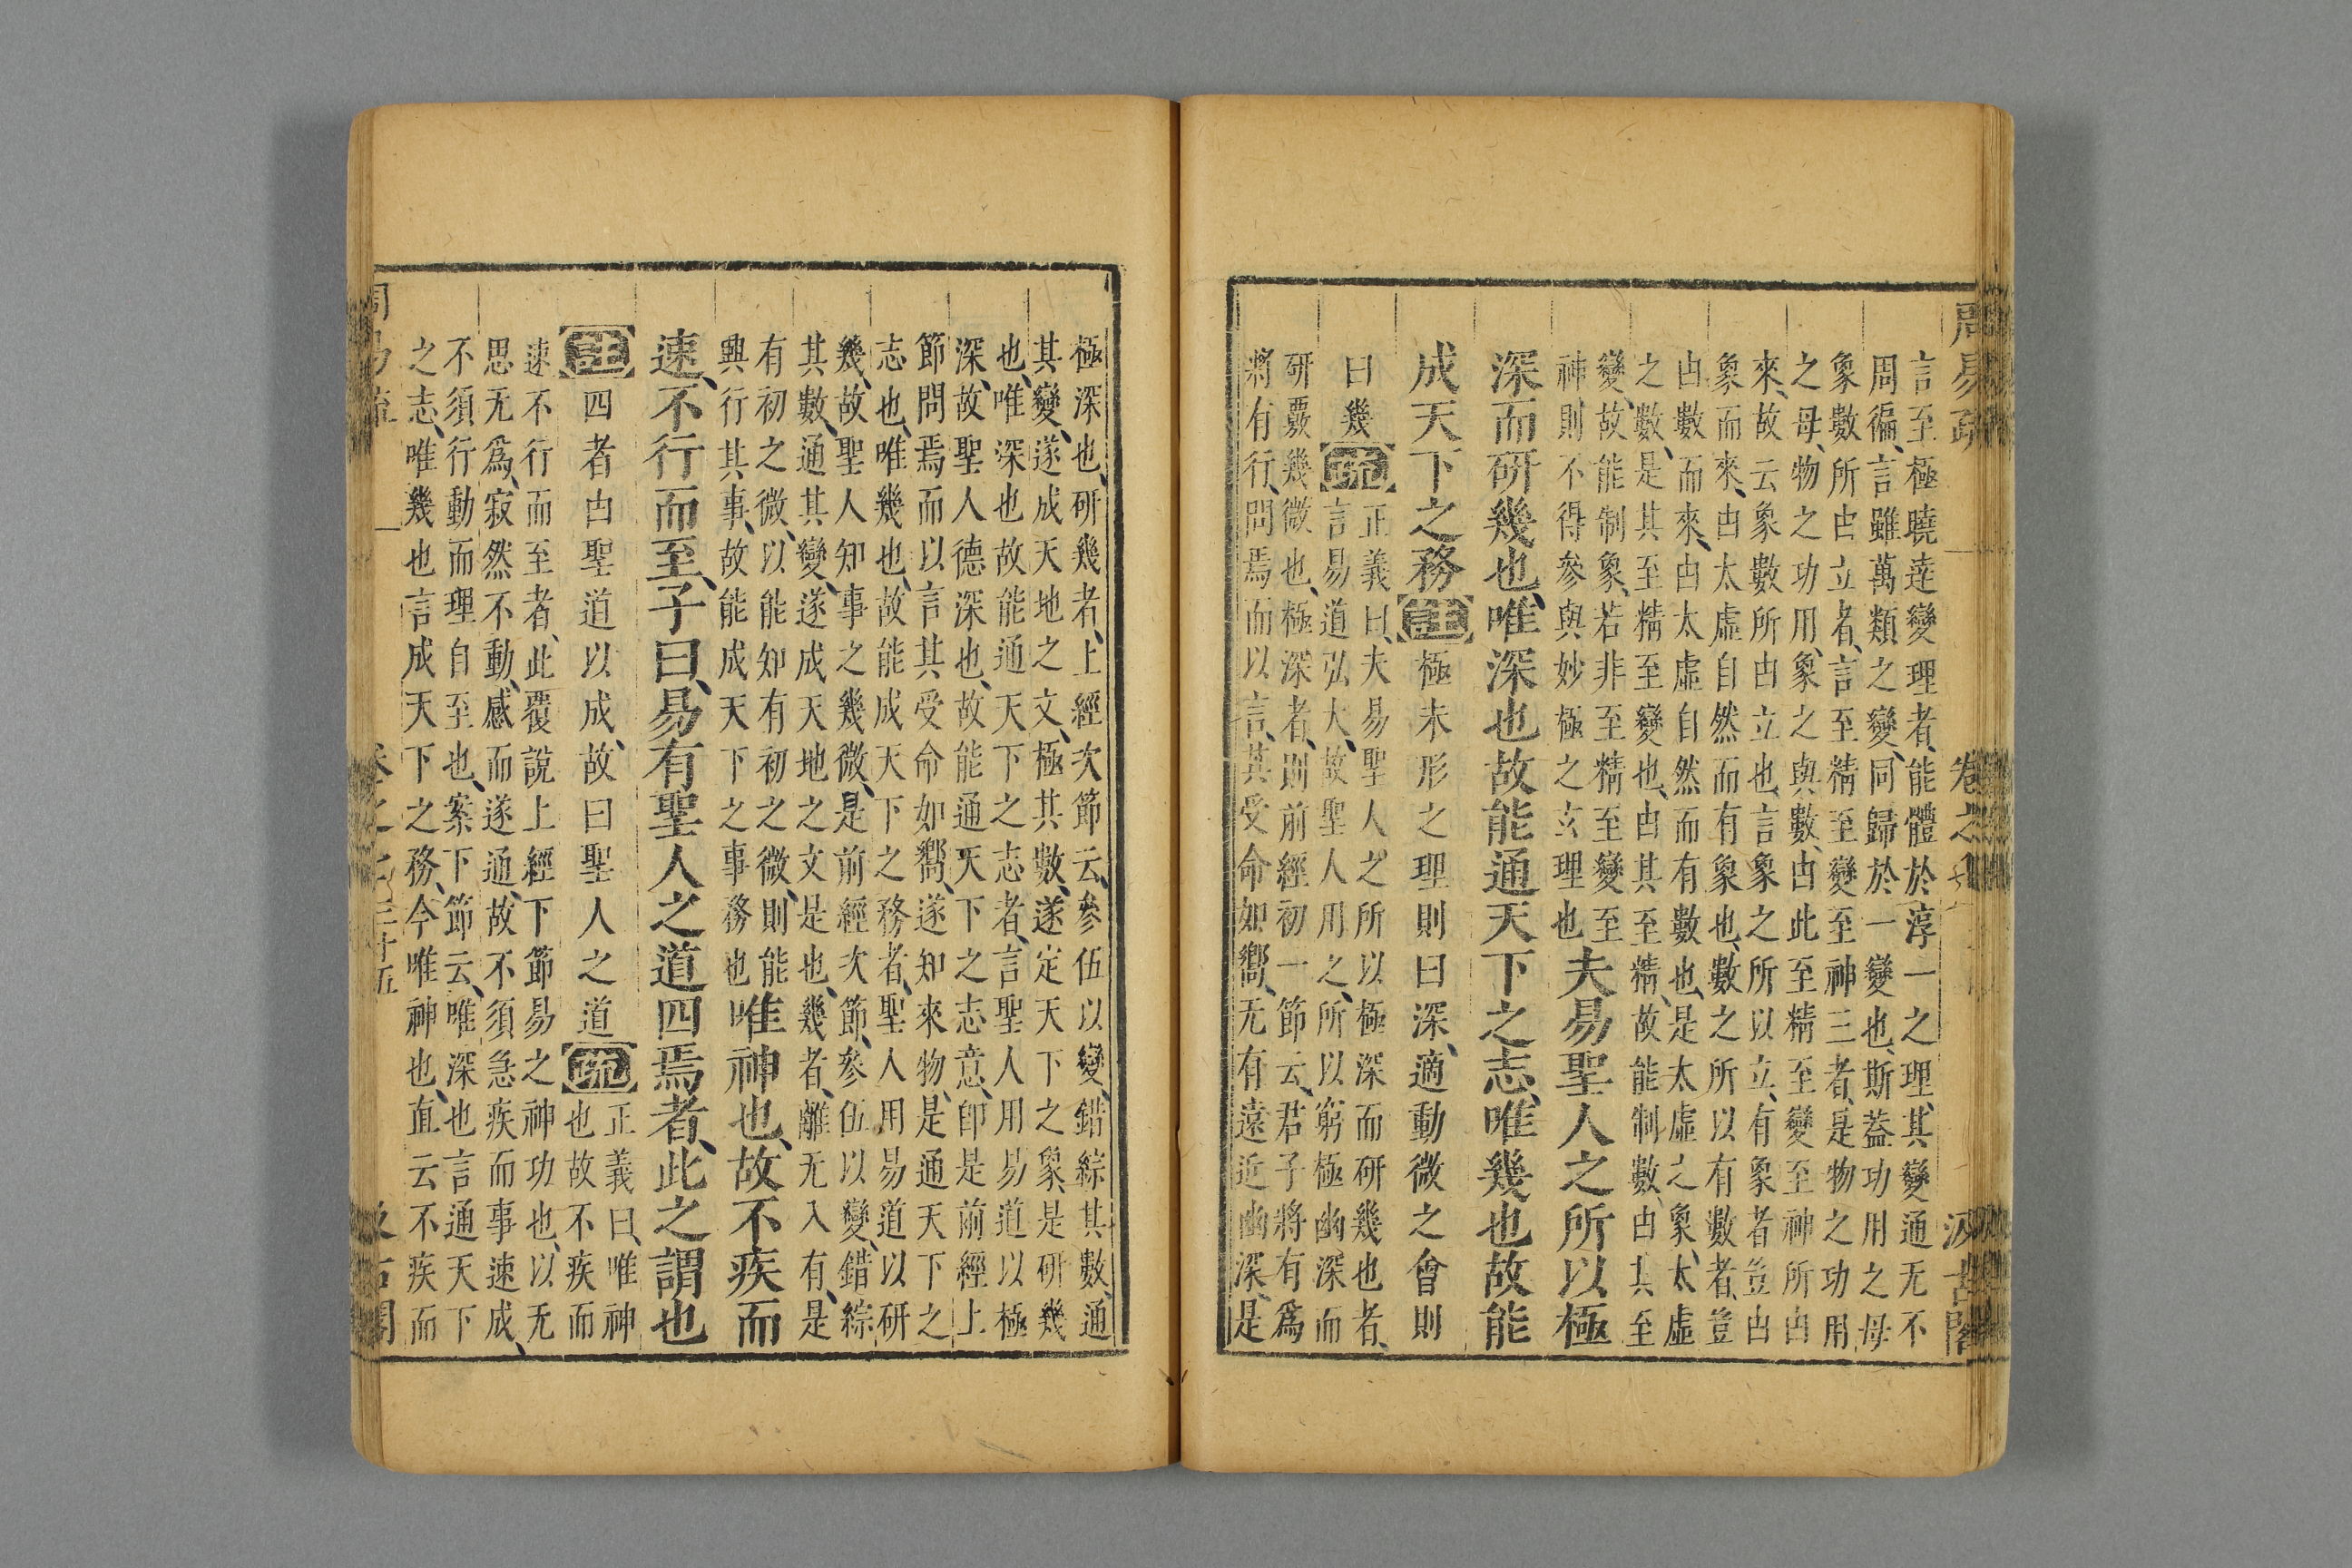 周易疏 卷之七 汲古閣
言至極曉達變理者能體於淳一之理其變通无不
周徧言雖萬類之變同歸於一變也斯蓋功用之母
象數所由立者言至精至變至神三者是物之功用
之母物之功用象之與數由此至精至變至神所由
來故云象數所由立也言象之所以立有象者豈由
象而來由太虛自然而有象也數之所以有數者豈
由數而來由太虛自然而有數也是太虛之象太虛
之數是其至精至變也由其至精故能制數由其至
變故能制象若非至精至變至
神則不得參與妙極之玄理也夫易聖人之所以極
深而研幾也唯深也故能通天下之志唯幾也故能
成天下之務註極未形之理則曰深適動微之會則
曰幾疏正義曰夫易聖人之所以極深而研幾也者
言易道弘大故聖人用之所以窮極幽深而
研覈幾微也極深者則前經初一節云君子將有爲
將有行問焉而以言其受命如嚮无有遠近幽深是
極深也研幾者上經次節云參伍以變錯綜其數通
其變遂成天地之文極其數遂定天下之象是研幾
也唯深也故能通天下之志者言聖人用易道以極
深故聖人德深也故能通天下之志意即是前經上
節問焉而以言其受命如嚮遂知來物是通天下之
志也唯幾也故能成天下之務者聖人用易道以研
幾故聖人知事之幾微是前經次節參伍以變錯綜
其數通其變遂成天地之文是也幾者離无入有是
有初之微以能知有初之微則能
興行其事故能成天下之事務也唯神也故不疾而
速不行而至子曰易有聖人之道四焉者此之謂也
註四者由聖道以成故曰聖人之道疏正義曰唯神
也故不疾而
速不行而至者此覆說上經下節易之神功也以无
思无爲寂然不動感而遂通故不須急疾而事速成
不須行動而理自至也案下節云唯深也言通天下
之志唯幾也言成天下之務今唯神也直云不疾而
周易疏 卷之七 三十五 汲古閣